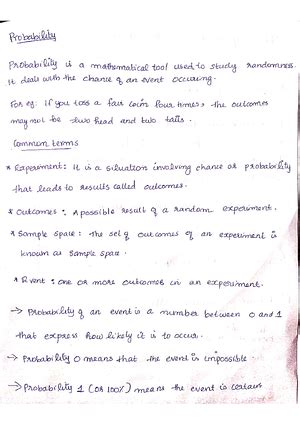 Probability
Probability is a mathematical tool used to study randomness.
It deals with the chance of an event occuring.
For eg: If you toss a fair coin four times, the outcomes
may not be two head and two tails.
Common terms
* Experiment: It is a situation involving chance or probability
that leads to results called outcomes.
* Outcomes: A possible result of a random experiment.
* Sample space: the set of outcomes of an experiment is
known as sample space.
* Event: one or more outcomes in an experiment.
→ Probability of an event is a number between 0 and 1
that express how likely it is to occur.
→ Probability 0 means that the event is impossible.
→ Probability 1 (or 100%) means the event is certain